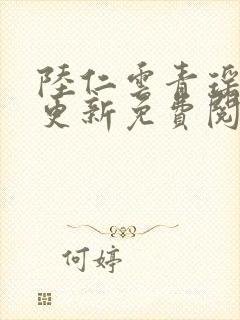 陸仁雲青瑶
更新免費閱
何婷